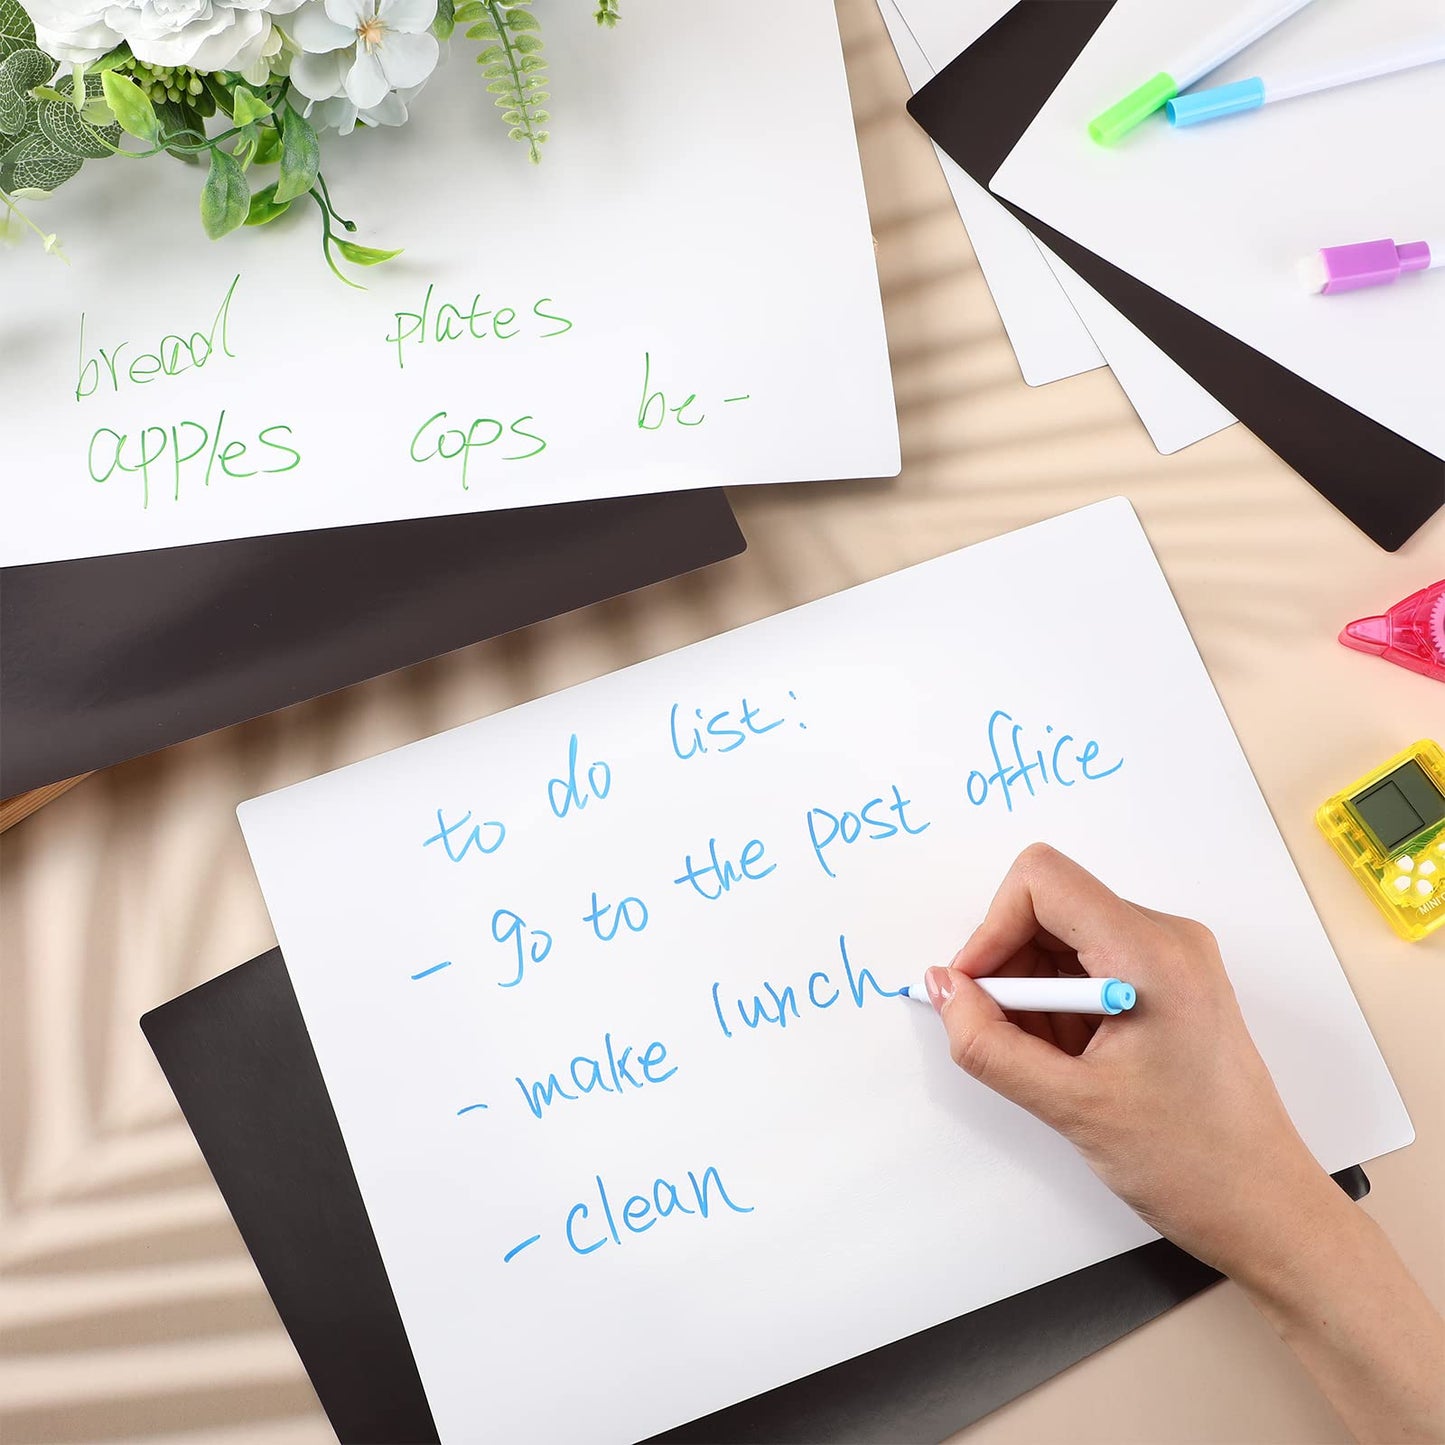 bread plates
apples cops be-
to do list:
- go to the post office
- make lunch
- clean
MINI